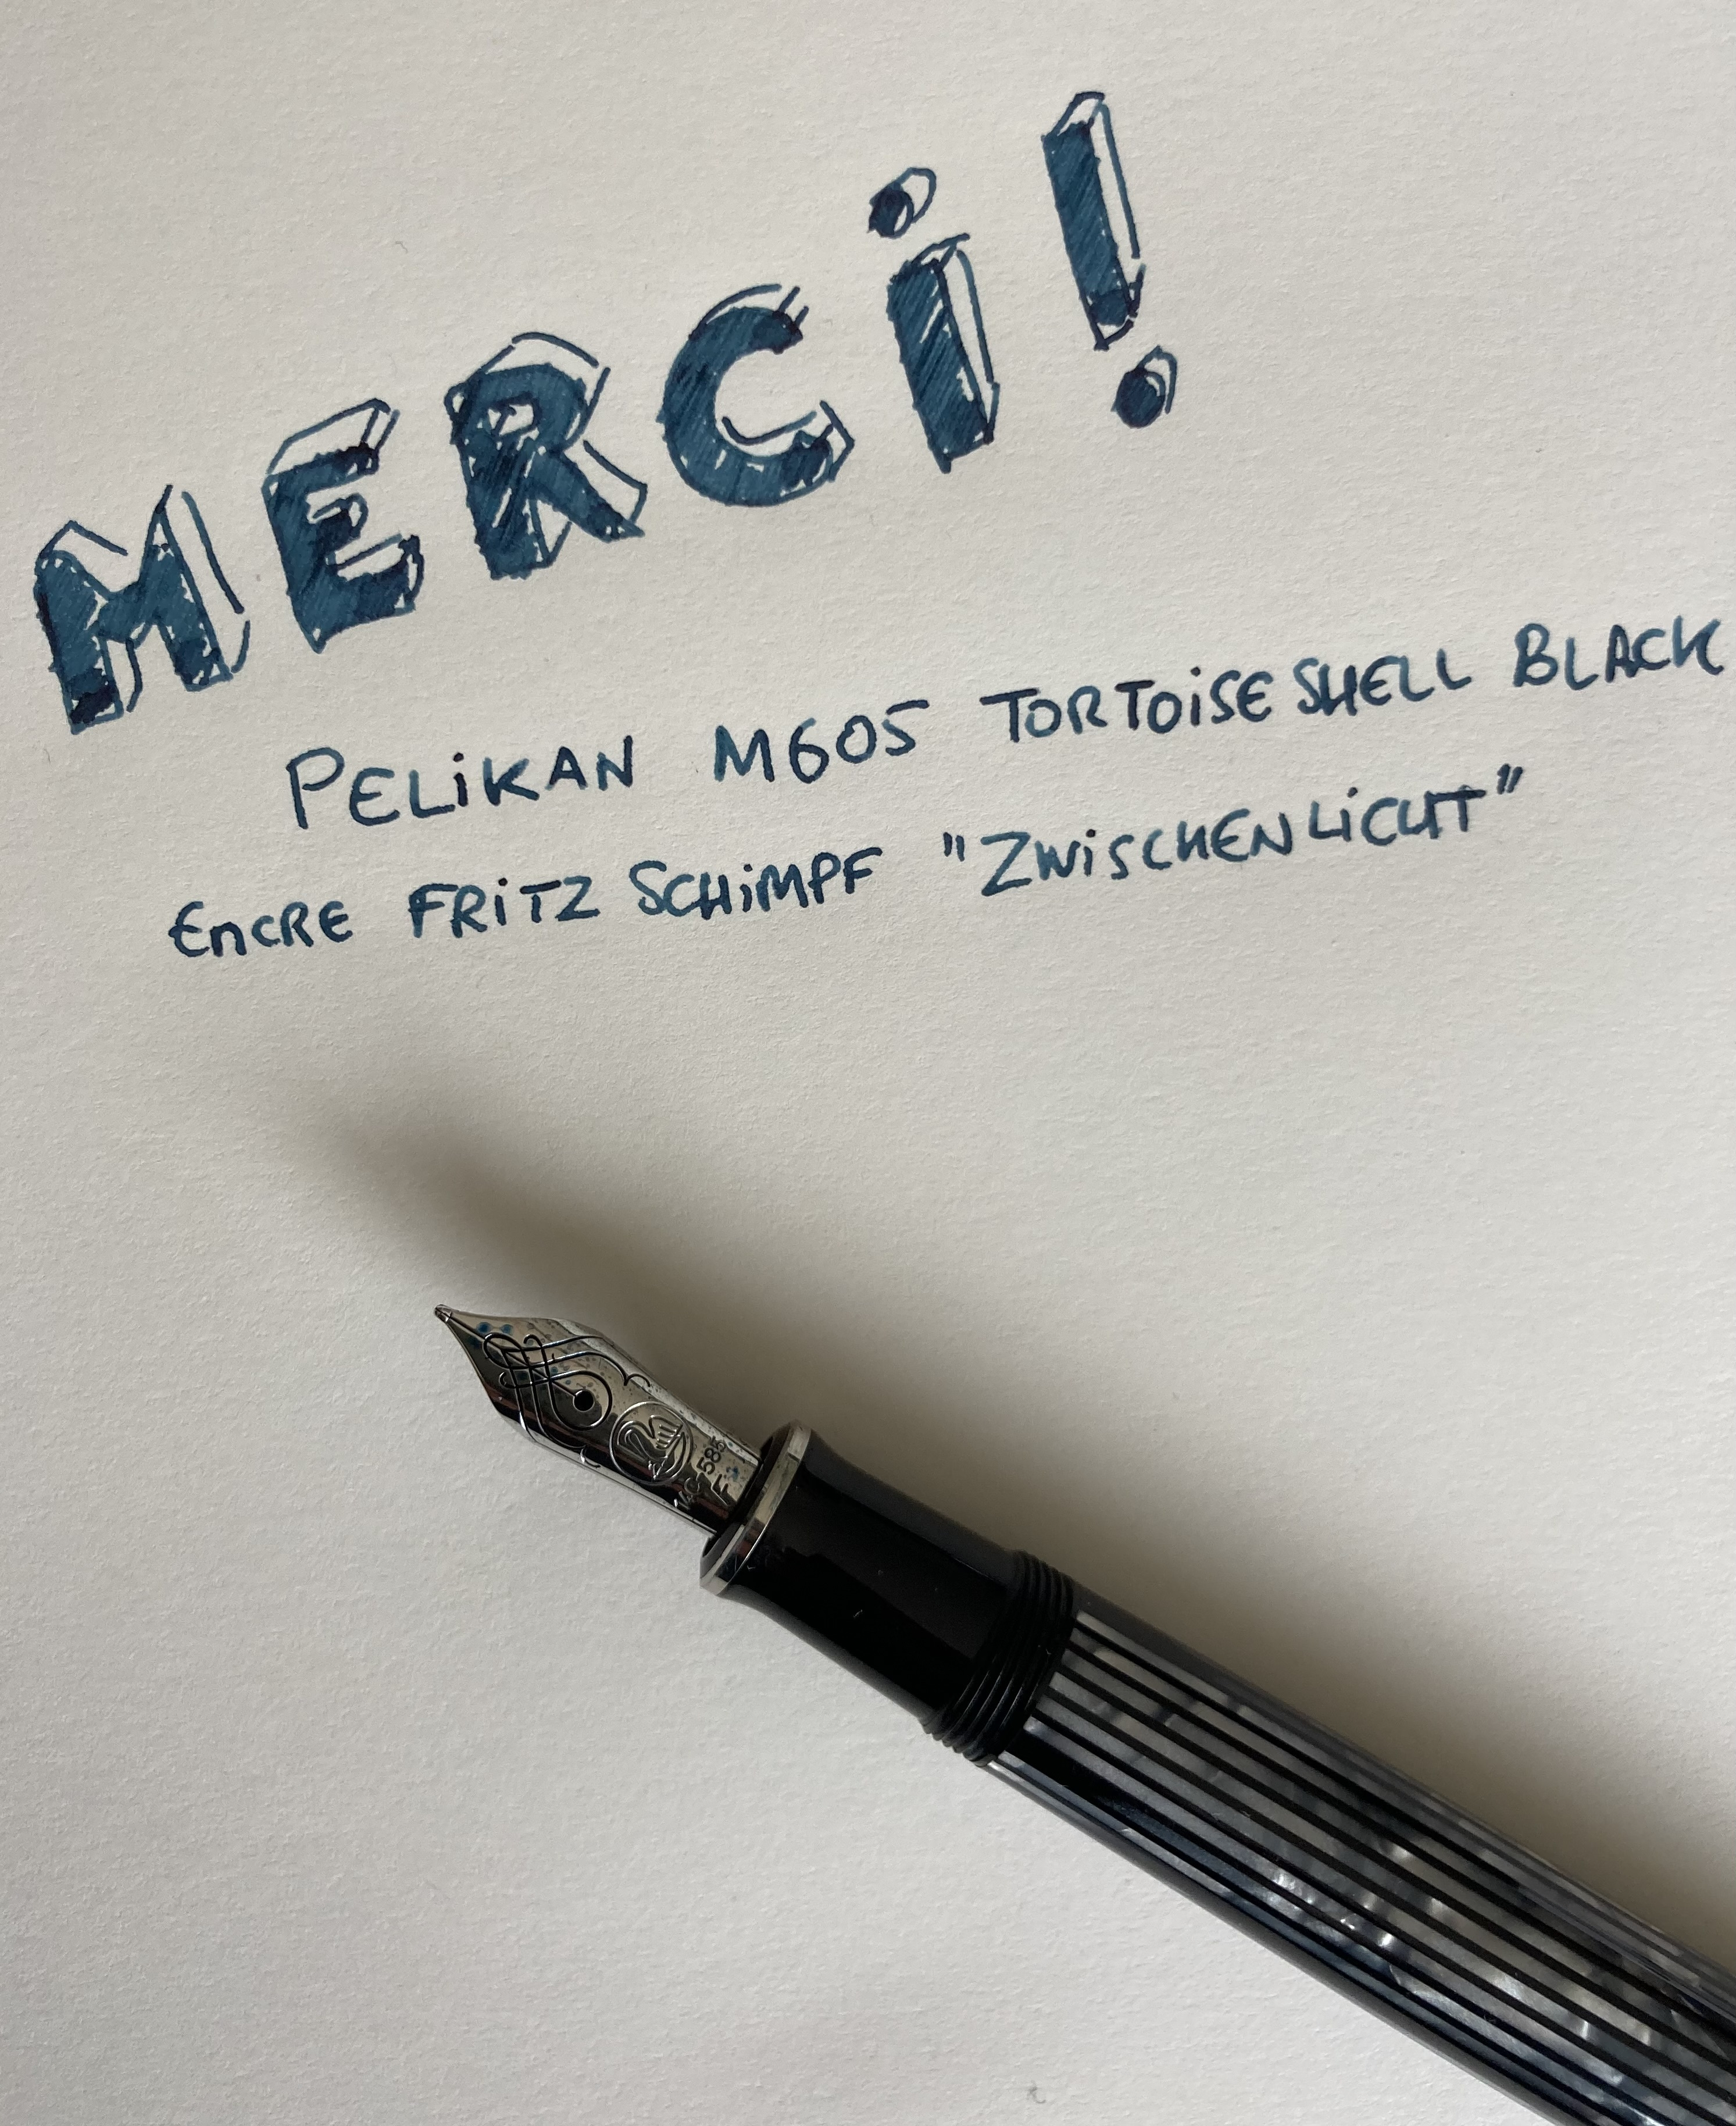 MERCi!
PELiKAN M605 TORTOiSESHELL BLACK
EnCRE FRiTZ SCHiMPF "ZWiSCHENLiCHT"
14C-585
F